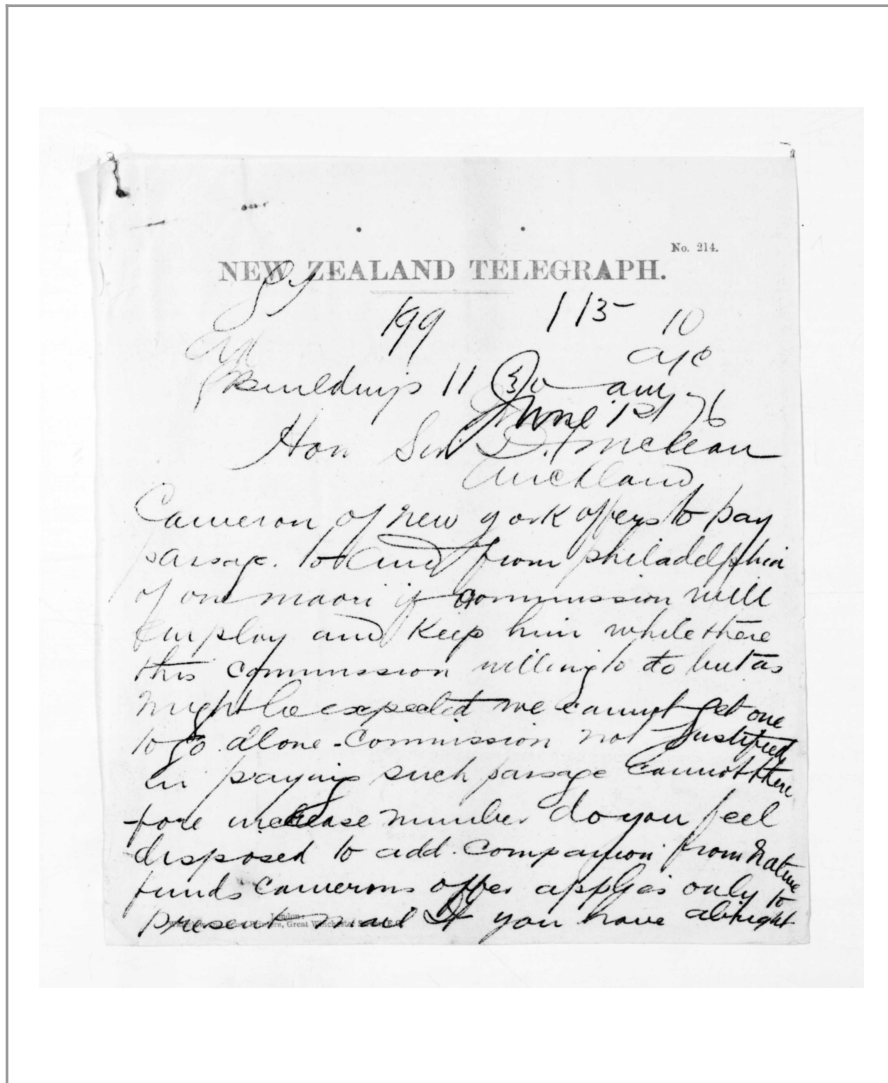 No. 214.
NEW ZEALAND TELEGRAPH.
199 115 10
Buildings 11 30 am
June 1st 76
Hon Sir D. McLean
Auckland
Cameron of New york offers to pay
passage. to and from philadelphia
of one maori if commission will
Employ and Keep him while there
this commission willing to do but as
might be expected we cannot get one
to go alone. Commission not Justified
in paying such passage cannot there
fore increase number do you feel
disposed to add. Companion from Native
funds Camerons offer applies only to
present mail If you have